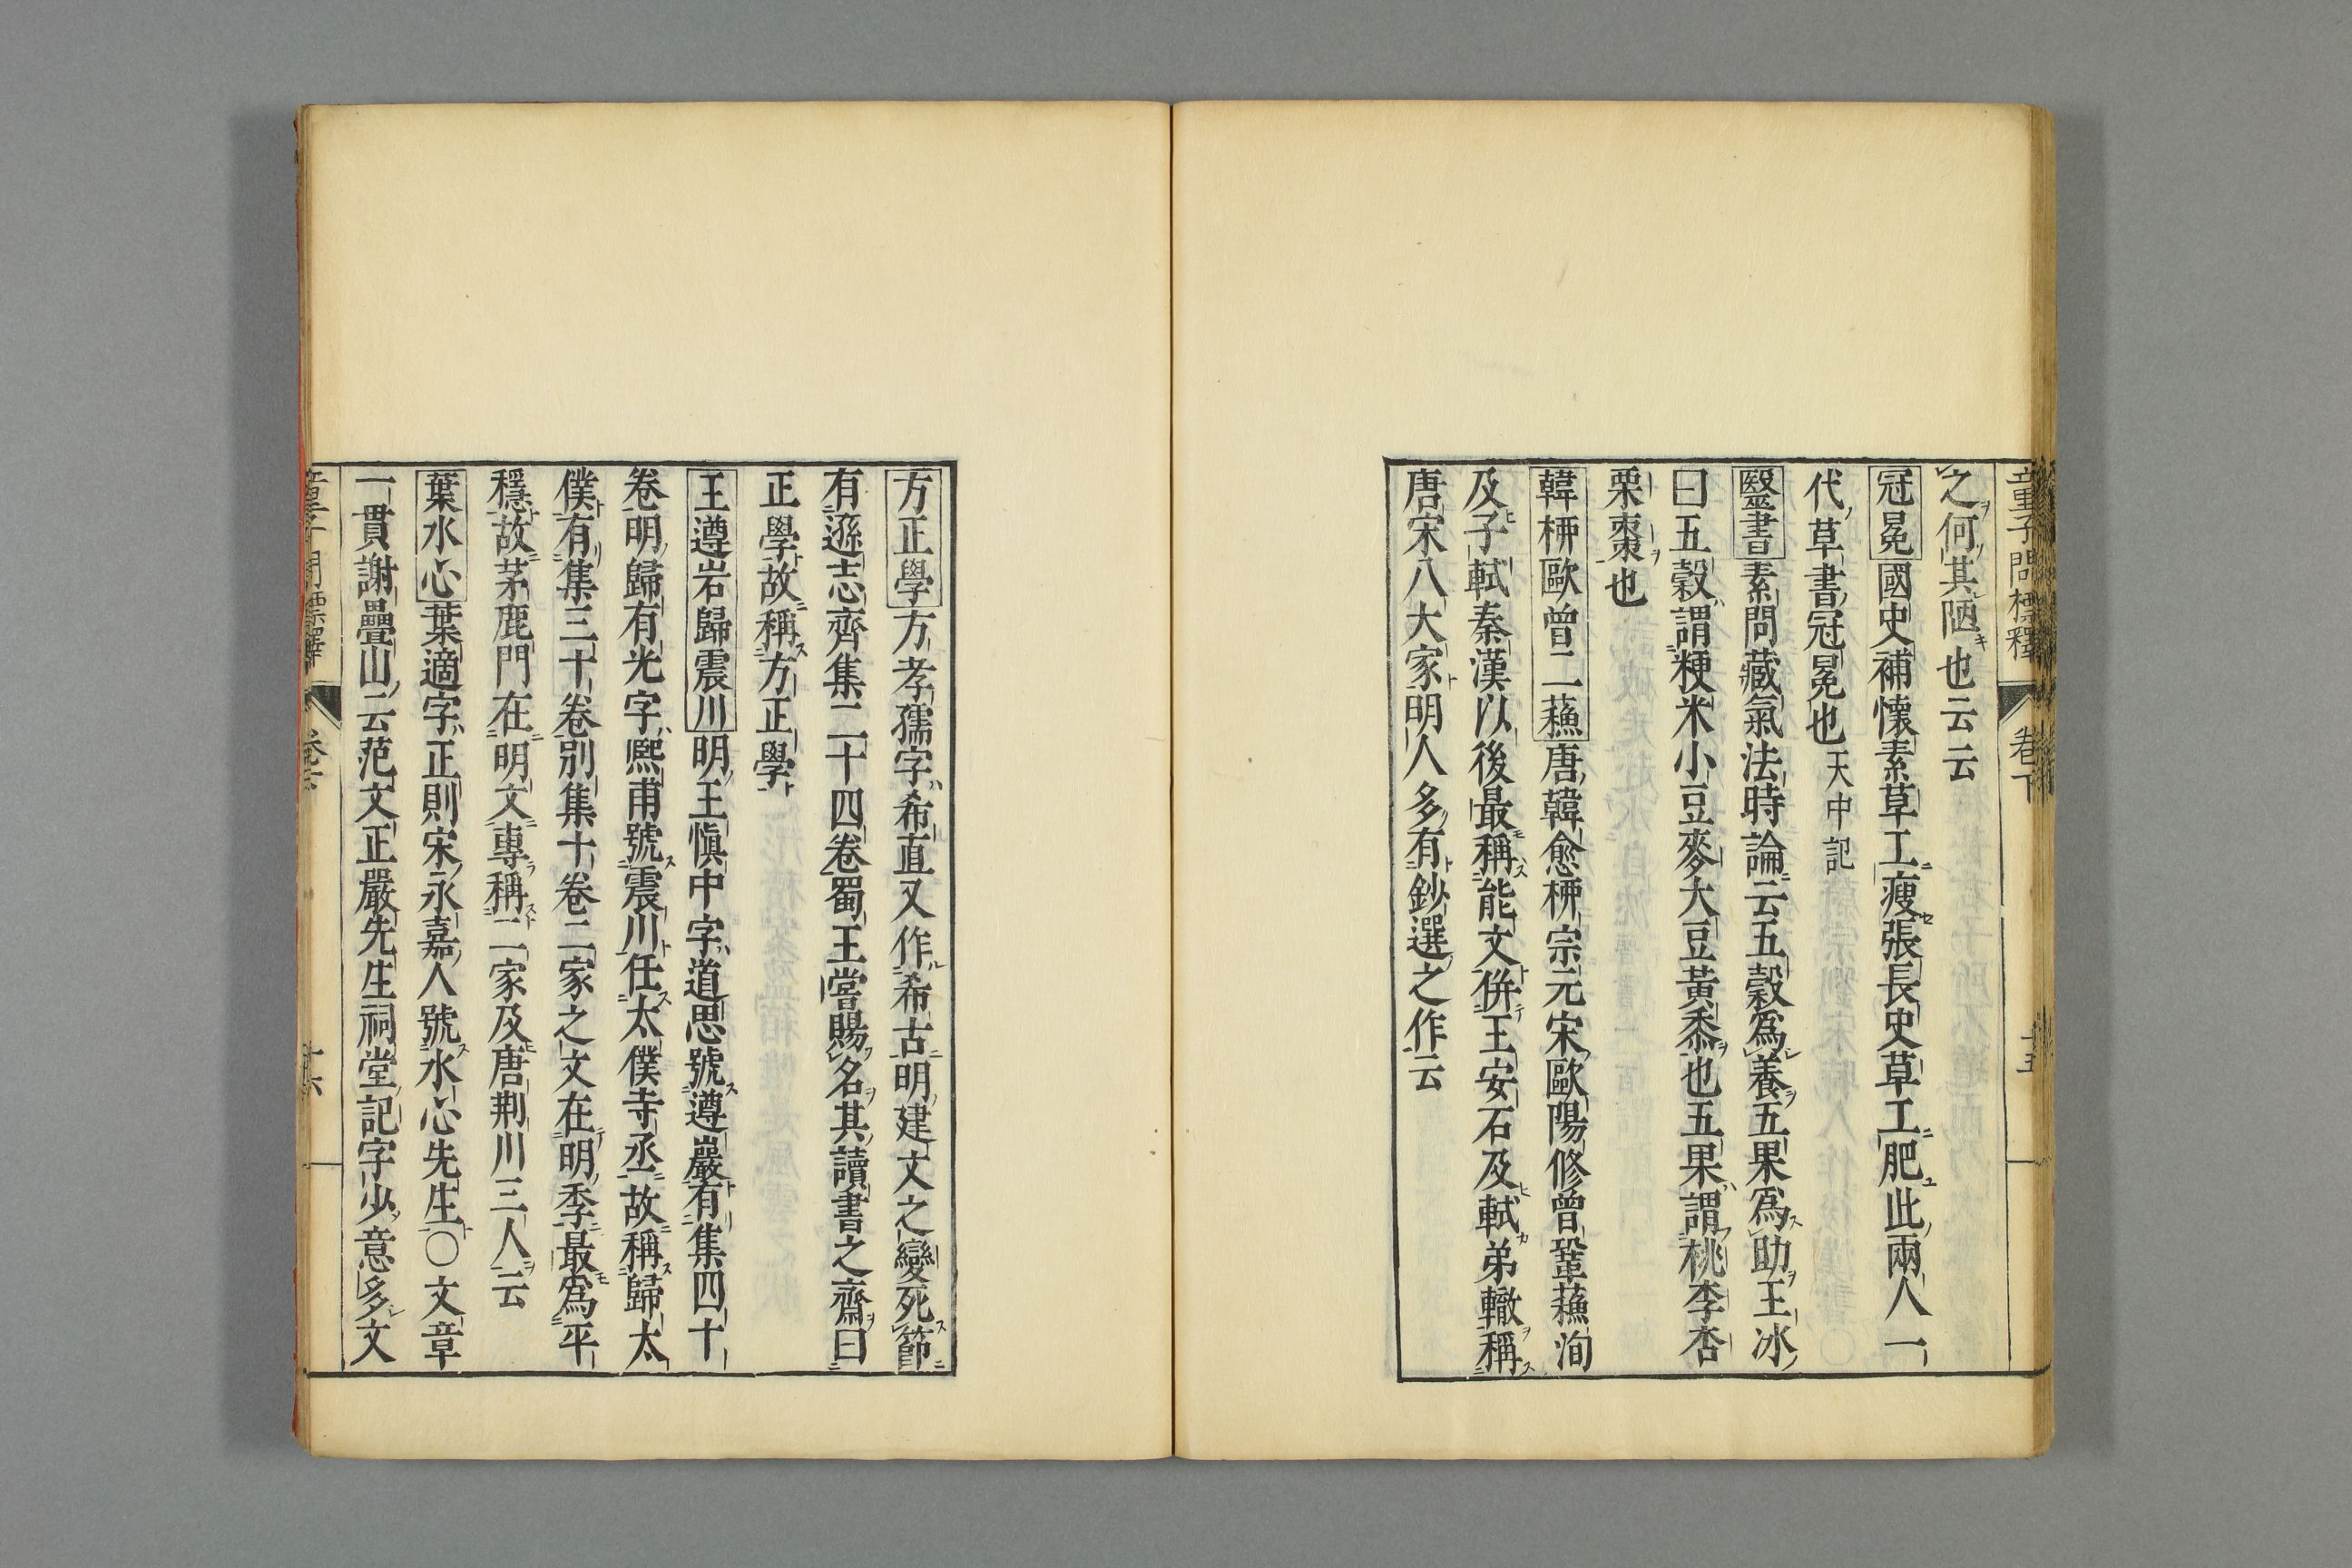 童子問標釋 卷下 十五
之何其陋也云云
冠冕國史補懷素草工瘦張長史草工肥此兩人一
代草書冠冕也天中記
醫書素問藏氣法時論云五穀爲養五果爲助王冰
曰五穀謂粳米小豆麥大豆黃黍也五果謂桃李杏
栗棗也
韓柳歐曾二蘓唐韓愈柳宗元宋歐陽修曾鞏蘓洵
及子軾秦漢以後最稱能文倂王安石及軾弟轍稱
唐宋八大家明人多有鈔選之作云
方正學方孝孺字希直又作希古明建文之變死節
有遜志齊集二十四卷蜀王嘗賜名其讀書之齋曰
正學故稱方正學
王遵岩歸震川明王愼中字道思號遵巖有集四十
卷明歸有光字熙甫號震川任太僕寺丞故稱歸太
僕有集三十卷別集十卷二家之文在明季最爲平
穩故茅鹿門在明文專稱二家及唐荆川三人云
葉水心葉適字正則宋永嘉人號水心先生〇文章
一貫謝疊山云范文正嚴先生祠堂記字少意多文